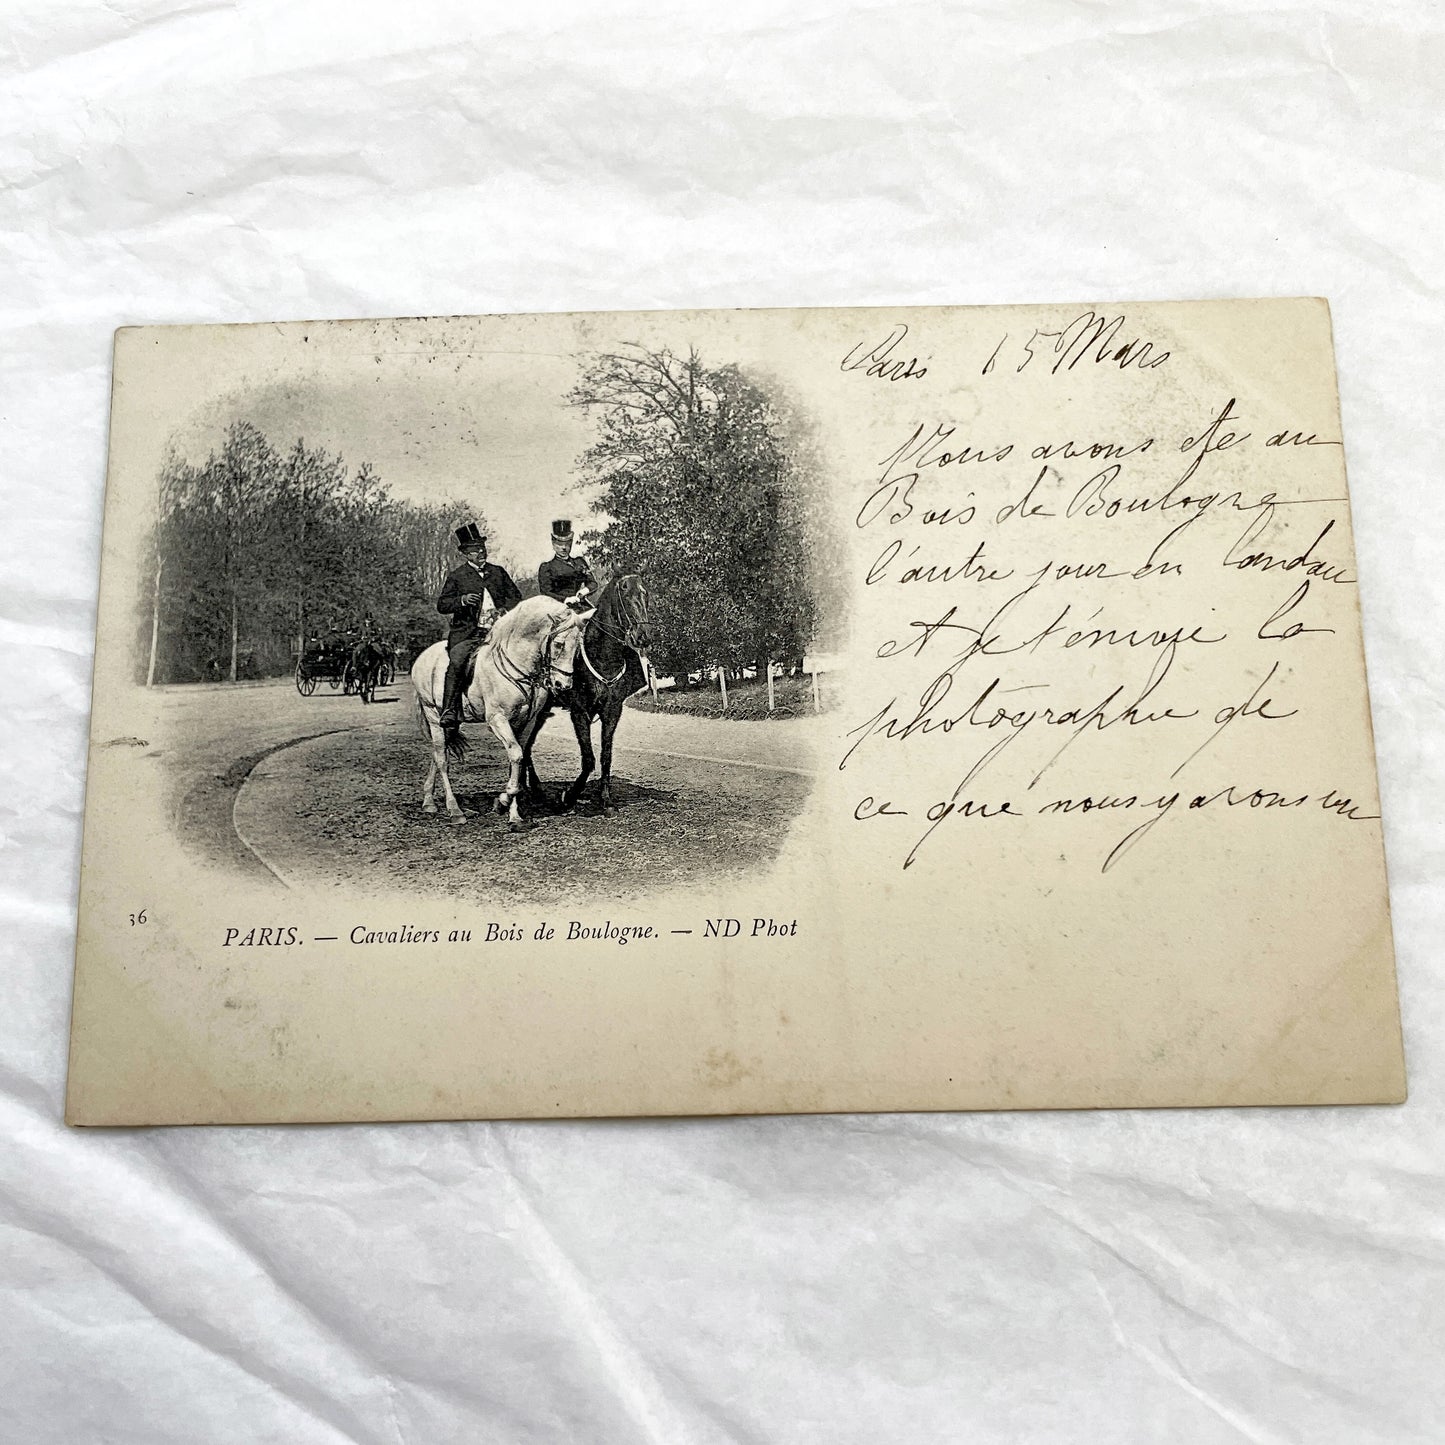 Paris 15 Mars
Nous avons été au
Bois de Boulogne
l'autre jour en landau
et je t'envoie la
photographie de
ce que nous y avons vu
36
PARIS. — Cavaliers au Bois de Boulogne. — ND Phot